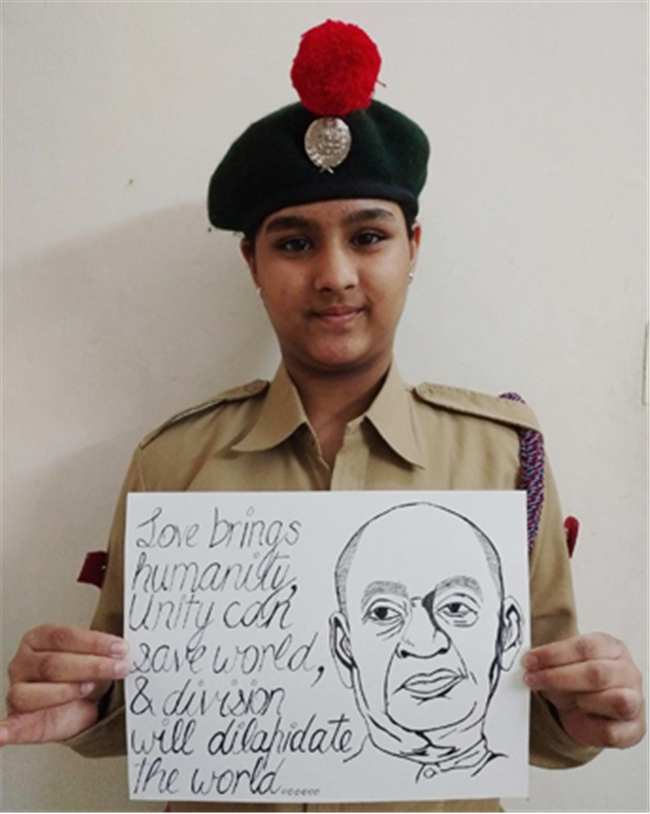 Love brings
humanity,
Unity can
save world,
& division
will dilapidate
the world......